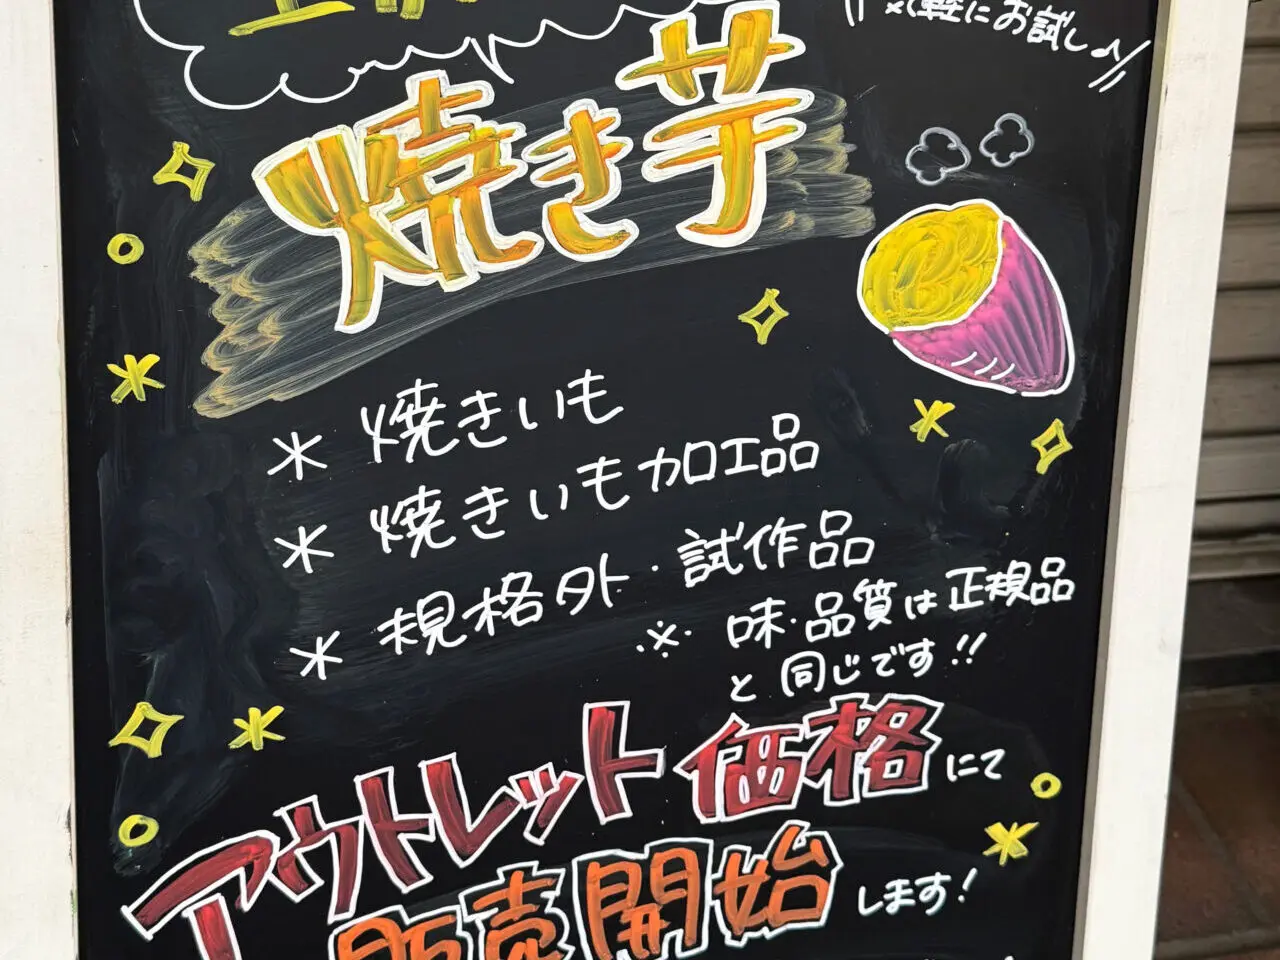 軽にお試し♪
焼き芋
＊焼きいも
＊焼きいも加工品
＊規格外・試作品
※味・品質は正規品
と同じです!!
アウトレット価格にて
販売開始します!